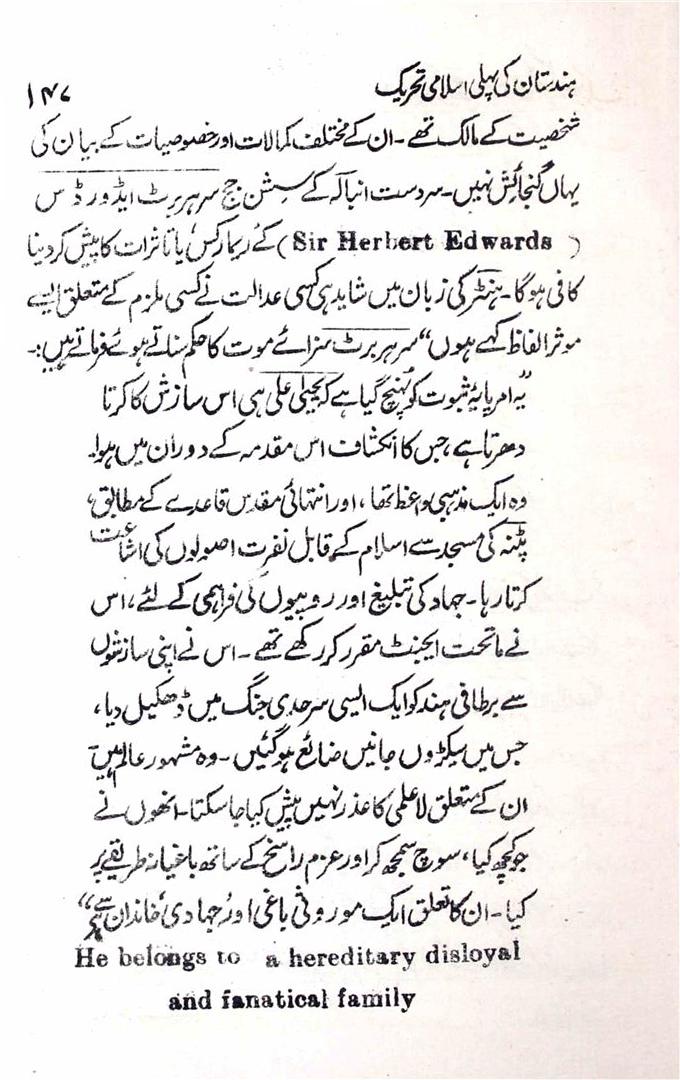 ہندستان کی پہلی اسلامی تحریک ۱۴۷
شخصیت کے مالک تھے ۔ ان کے مختلف کمالات اور خصوصیات کے بیان کی
یہاں گنجائش نہیں ۔ سردست انبالہ کے سیشن جج سر ہربرٹ ایڈورڈس
(Sir Herbert Edwards) کے ریمارکس یا تاثرات کا پیش کر دینا
کافی ہوگا ۔ ہنٹر کی زبان میں شاید ہی کسی عدالت نے کسی ملزم کے متعلق ایسے
موثر الفاظ کہے ہوں“ سر ہربرٹ سزائے موت کا حکم سناتے ہوئے فرماتے ہیں :۔
”یہ امر پایۂ ثبوت کو پہنچ گیا ہے کہ یحییٰ علی ہی اس سازش کا کرتا
دھرتا ہے ، جس کا انکشاف اس مقدمہ کے دوران میں ہوا۔
وہ ایک مذہبی واعظ تھا ، اور انتہائی مقدس قاعدے کے مطابق ،
پٹنہ کی مسجد سے اسلام کے قابل نفرت اصولوں کی اشاعت
کرتا رہا ۔ جہاد کی تبلیغ اور روپیوں کی فراہمی کے لئے ، اس
نے ماتحت ایجنٹ مقرر کر رکھے تھے ۔ اس نے اپنی سازشوں
سے برطانی ہند کو ایک ایسی سرحدی جنگ میں ڈھکیل دیا ،
جس میں سیکڑوں جانیں ضائع ہوگئیں ۔ وہ مشہور عالم ہیں
ان کے متعلق لاعلمی کا عذر نہیں پیش کیا جا سکتا ۔ انھوں نے
جو کچھ کیا ، سوچ سمجھ کر اور عزم راسخ کے ساتھ باغیانہ طریقے پر
کیا ۔ ان کا تعلق ایک موروثی باغی اور جہادی خاندان سے ہے“
He belongs to a hereditary disloyal
and fanatical family